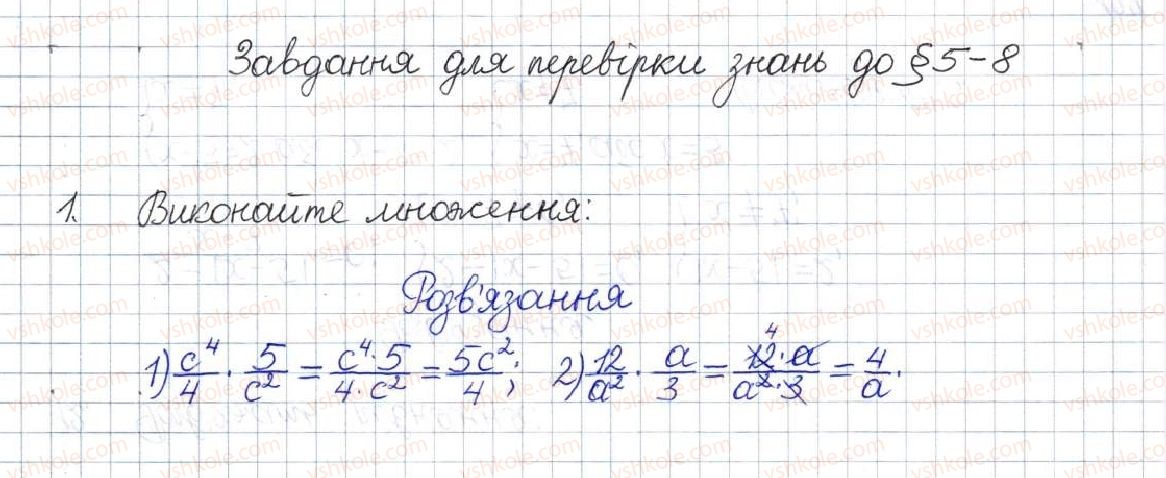 Завдання для перевірки знань до §5-8
1. Виконайте множення:
Розв'язання
1) c⁴/4 · 5/c² = c⁴·5/4·c² = 5c²/4; 2) 12/a² · a/3 = 12·a/a²·3 = 4/a.